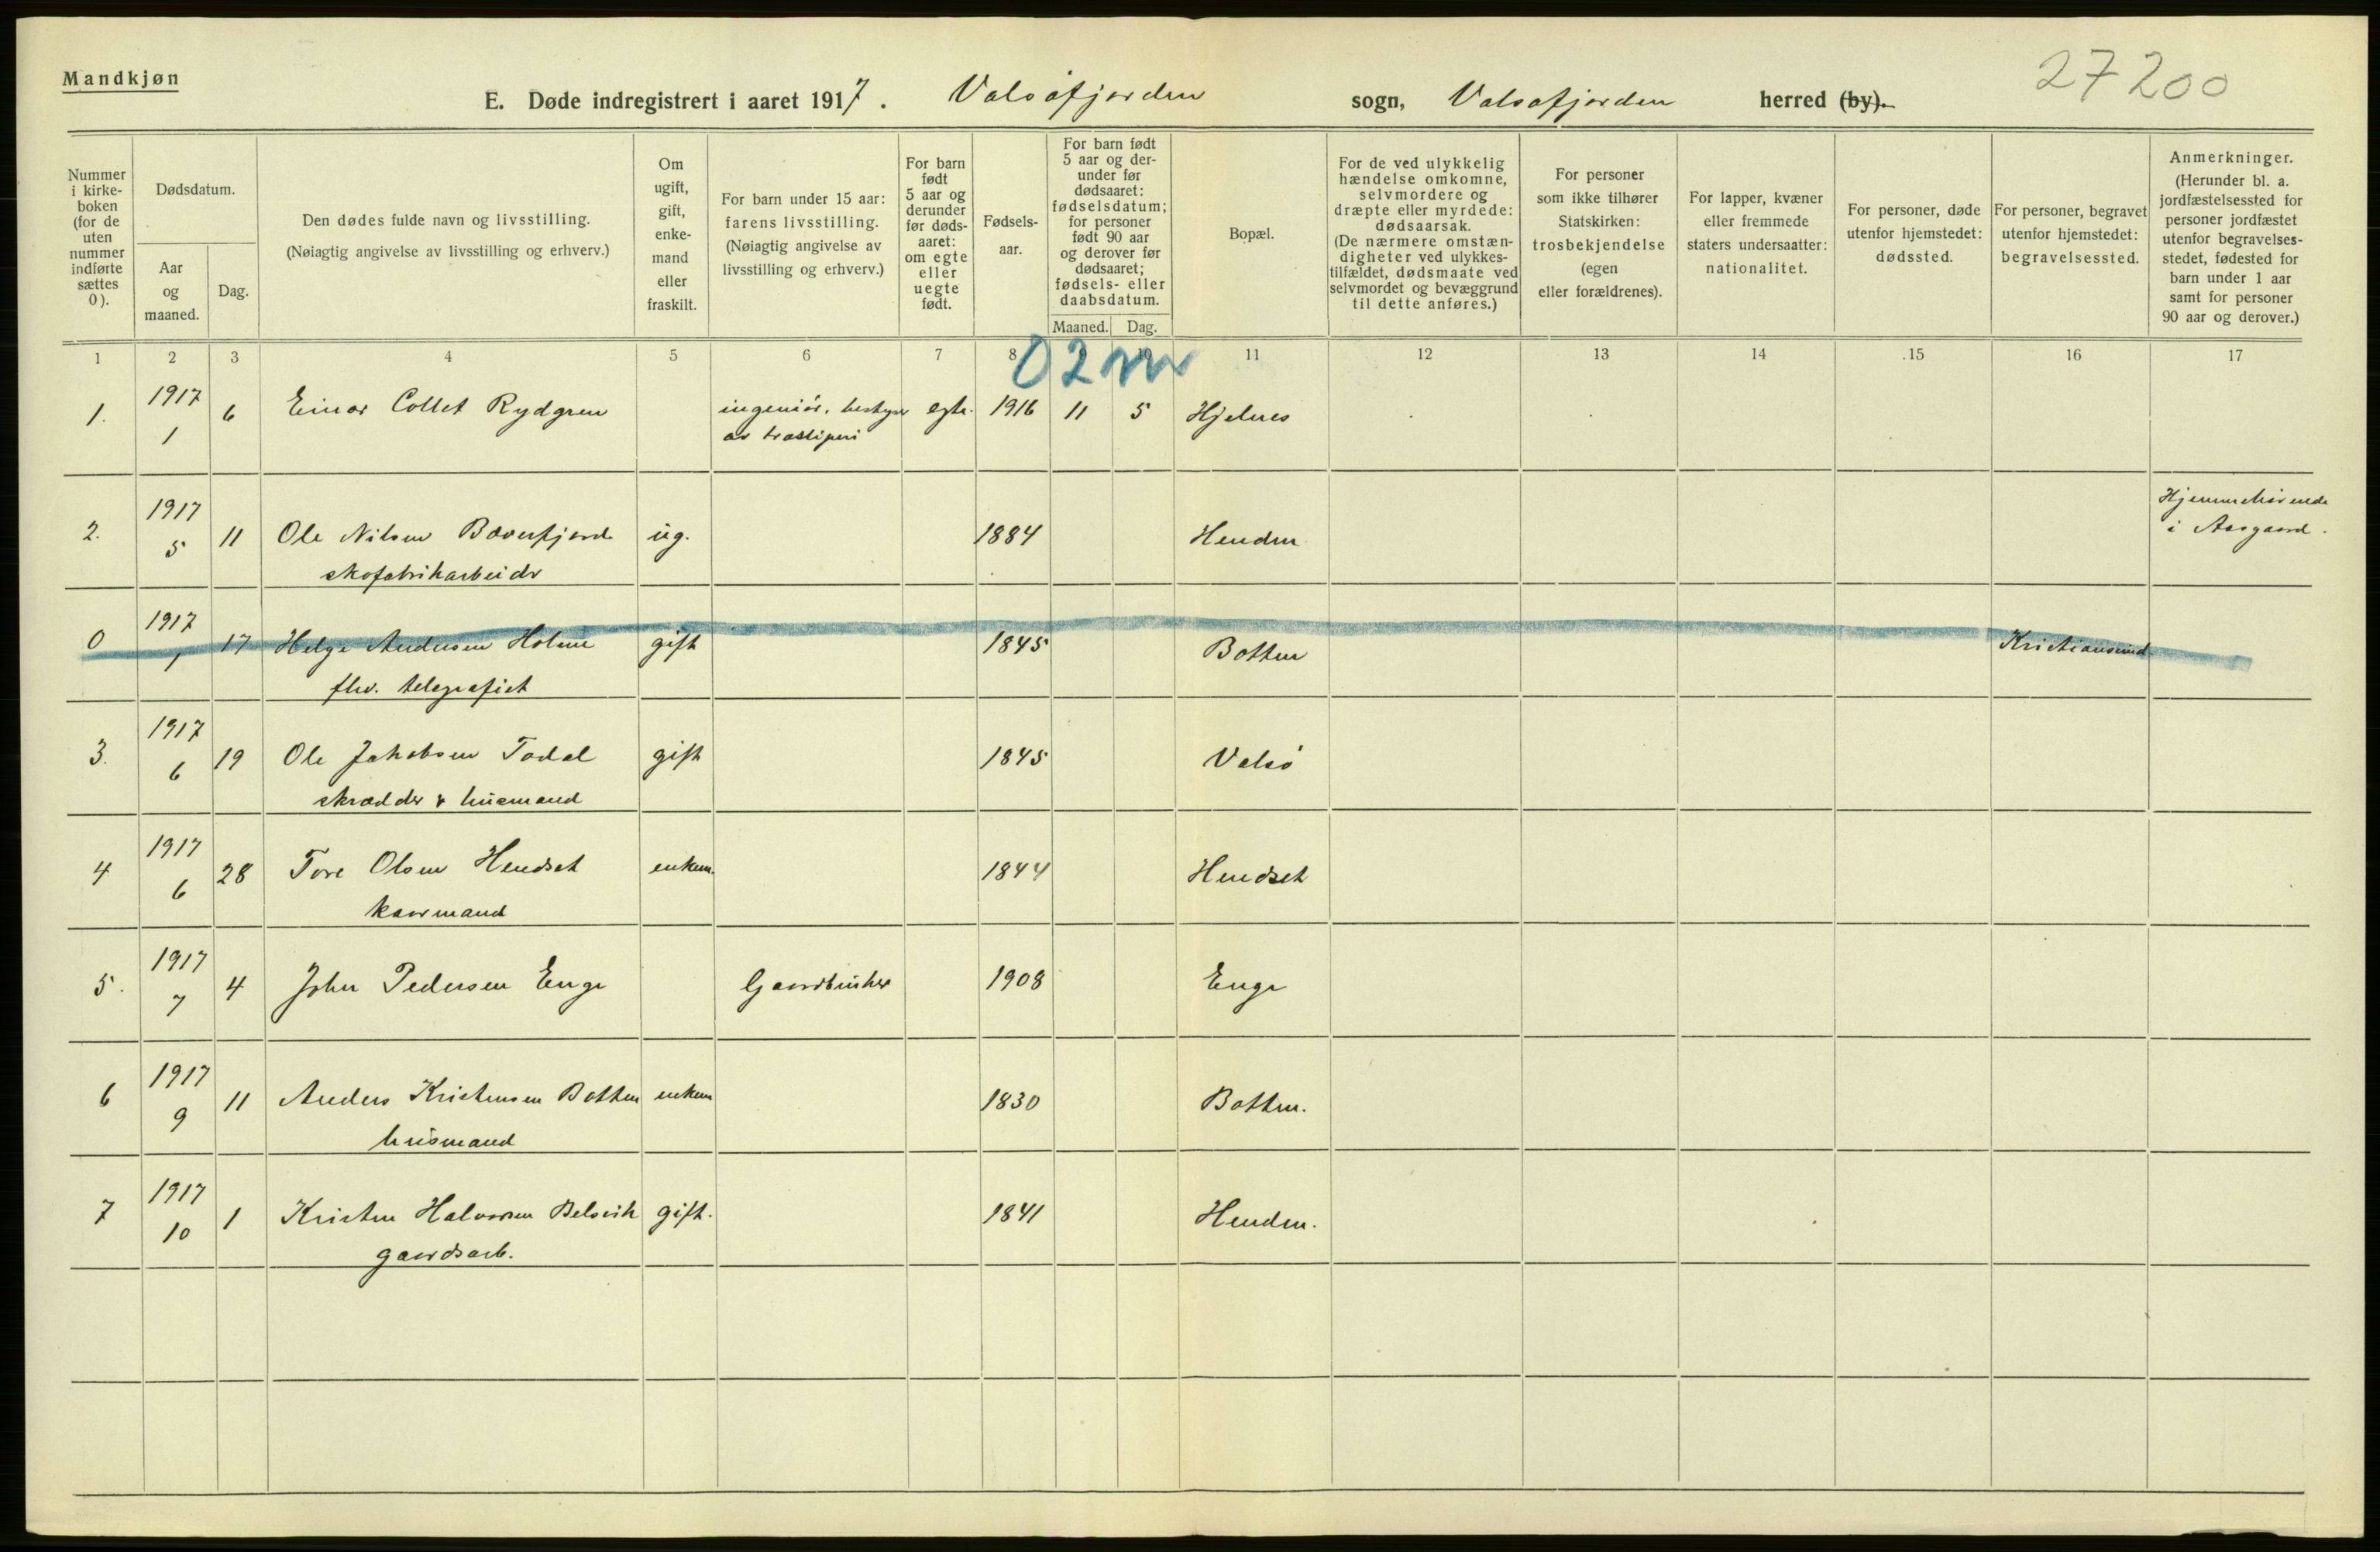 Mandkjøn
27200
E. Døde indregistrert i aaret 1917. Valsøfjorden sogn, Valsøfjorden herred (by).
Nummer i kirke-boken (for de uten nummer indførte sættes 0).
Dødsdatum.
Aar og maaned.
Dag.
Den dødes fulde navn og livsstilling.
(Nøiagtig angivelse av livsstilling og erhverv.)
Om ugift, gift, enke-mand eller fraskilt.
For barn under 15 aar: farens livsstilling.
(Nøiagtig angivelse av livsstilling og erhverv.)
For barn født 5 aar og derunder før døds-aaret: om egte eller uegte født.
Fødsels-aar.
For barn født 5 aar og der-under før dødsaaret: fødselsdatum; for personer født 90 aar og derover før dødsaaret; fødsels- eller daabsdatum.
Maaned. Dag.
Bopæl.
For de ved ulykkelig hændelse omkomne, selvmordere og dræpte eller myrdede: dødsaarsak.
(De nærmere omstæn-digheter ved ulykkes-tilfældet, dødsmaate ved selvmordet og bevæggrund til dette anføres.)
For personer som ikke tilhører Statskirken: trosbekjendelse (egen eller forældrenes).
For lapper, kvæner eller fremmede staters undersaatter: nationalitet.
For personer, døde utenfor hjemstedet: dødssted.
For personer, begravet utenfor hjemstedet: begravelsessted.
Anmerkninger.
(Herunder bl. a. jordfæstelsessted for personer jordfæstet utenfor begravelses-stedet, fødested for barn under 1 aar samt for personer 90 aar og derover.)
1 2 3 4 5 6 7 8 9 10 11 12 13 14 15 16 17
02 m
1. 1917 1 6 Einar Collet Rydgren ingeniør, bestyrer egte. 1916 11 5 Hjelnes
av træsliperi
2. 1917 5 11 Ole Nilsen Bøverfjord ug. 1884 Henden Hjemmehørende
skofabrikarbeider i Aasgaard.
0 1917 1 17 Helge Andersen Holme gift 1845 Botten Kristiansund
fhv. telegrafist
3. 1917 6 19 Ole Jakobsen Todal gift 1845 Valsø
skrædder & husmand
4 1917 6 28 Tore Olsen Hendset enkem. 1844 Hendset
kaarmand
5. 1917 7 4 John Pedersen Enge Gaardbruker 1908 Enge
6 1917 9 11 Anders Kristensen Botten enkem 1830 Botten.
husmand
7 1917 10 1 Kristen Halvorsen Belsvik gift. 1841 Henden.
gaardsarb.